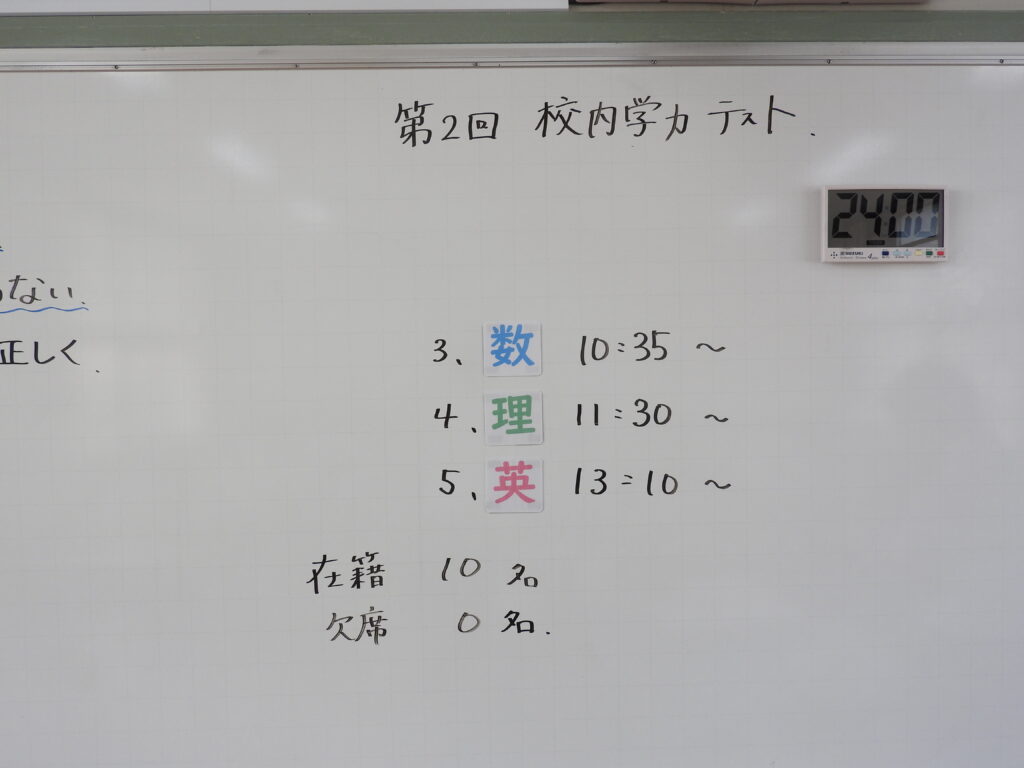 第2回 校内学力テスト.
24:00
ない.
正しく.
3、数 10:35 ~
4、理 11:30 ~
5、英 13:10 ~
在籍 10 名
欠席 0 名.